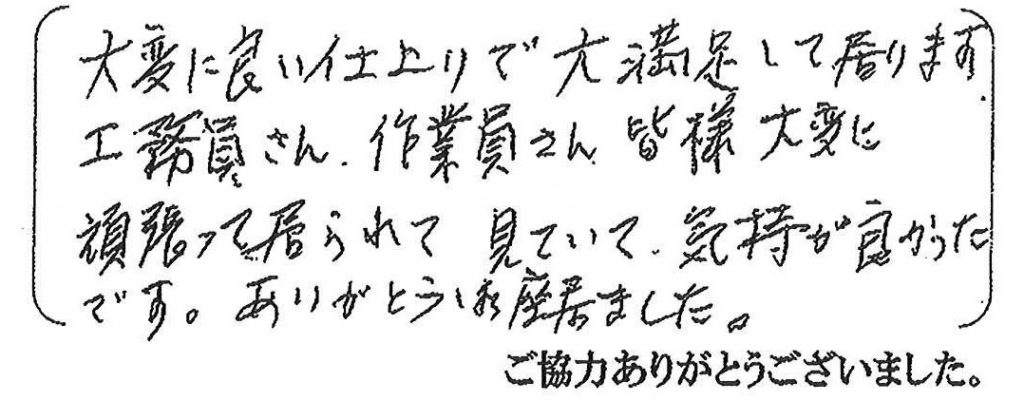 大変に良い仕上りで大満足して居ります
工務員さん、作業員さん 皆様 大変に
頑張って居られて 見ていて、気持が良かった
です。ありがとう御座居ました。
ご協力ありがとうございました。